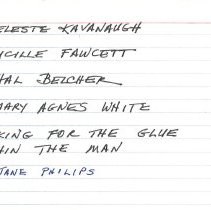 ELESTE KAVANAUGH
UCILLE FAWCETT
HAL BELCHER
MARY AGNES WHITE
KING FOR THE GLUE
HIN THE MAN
JANE PHILIPS